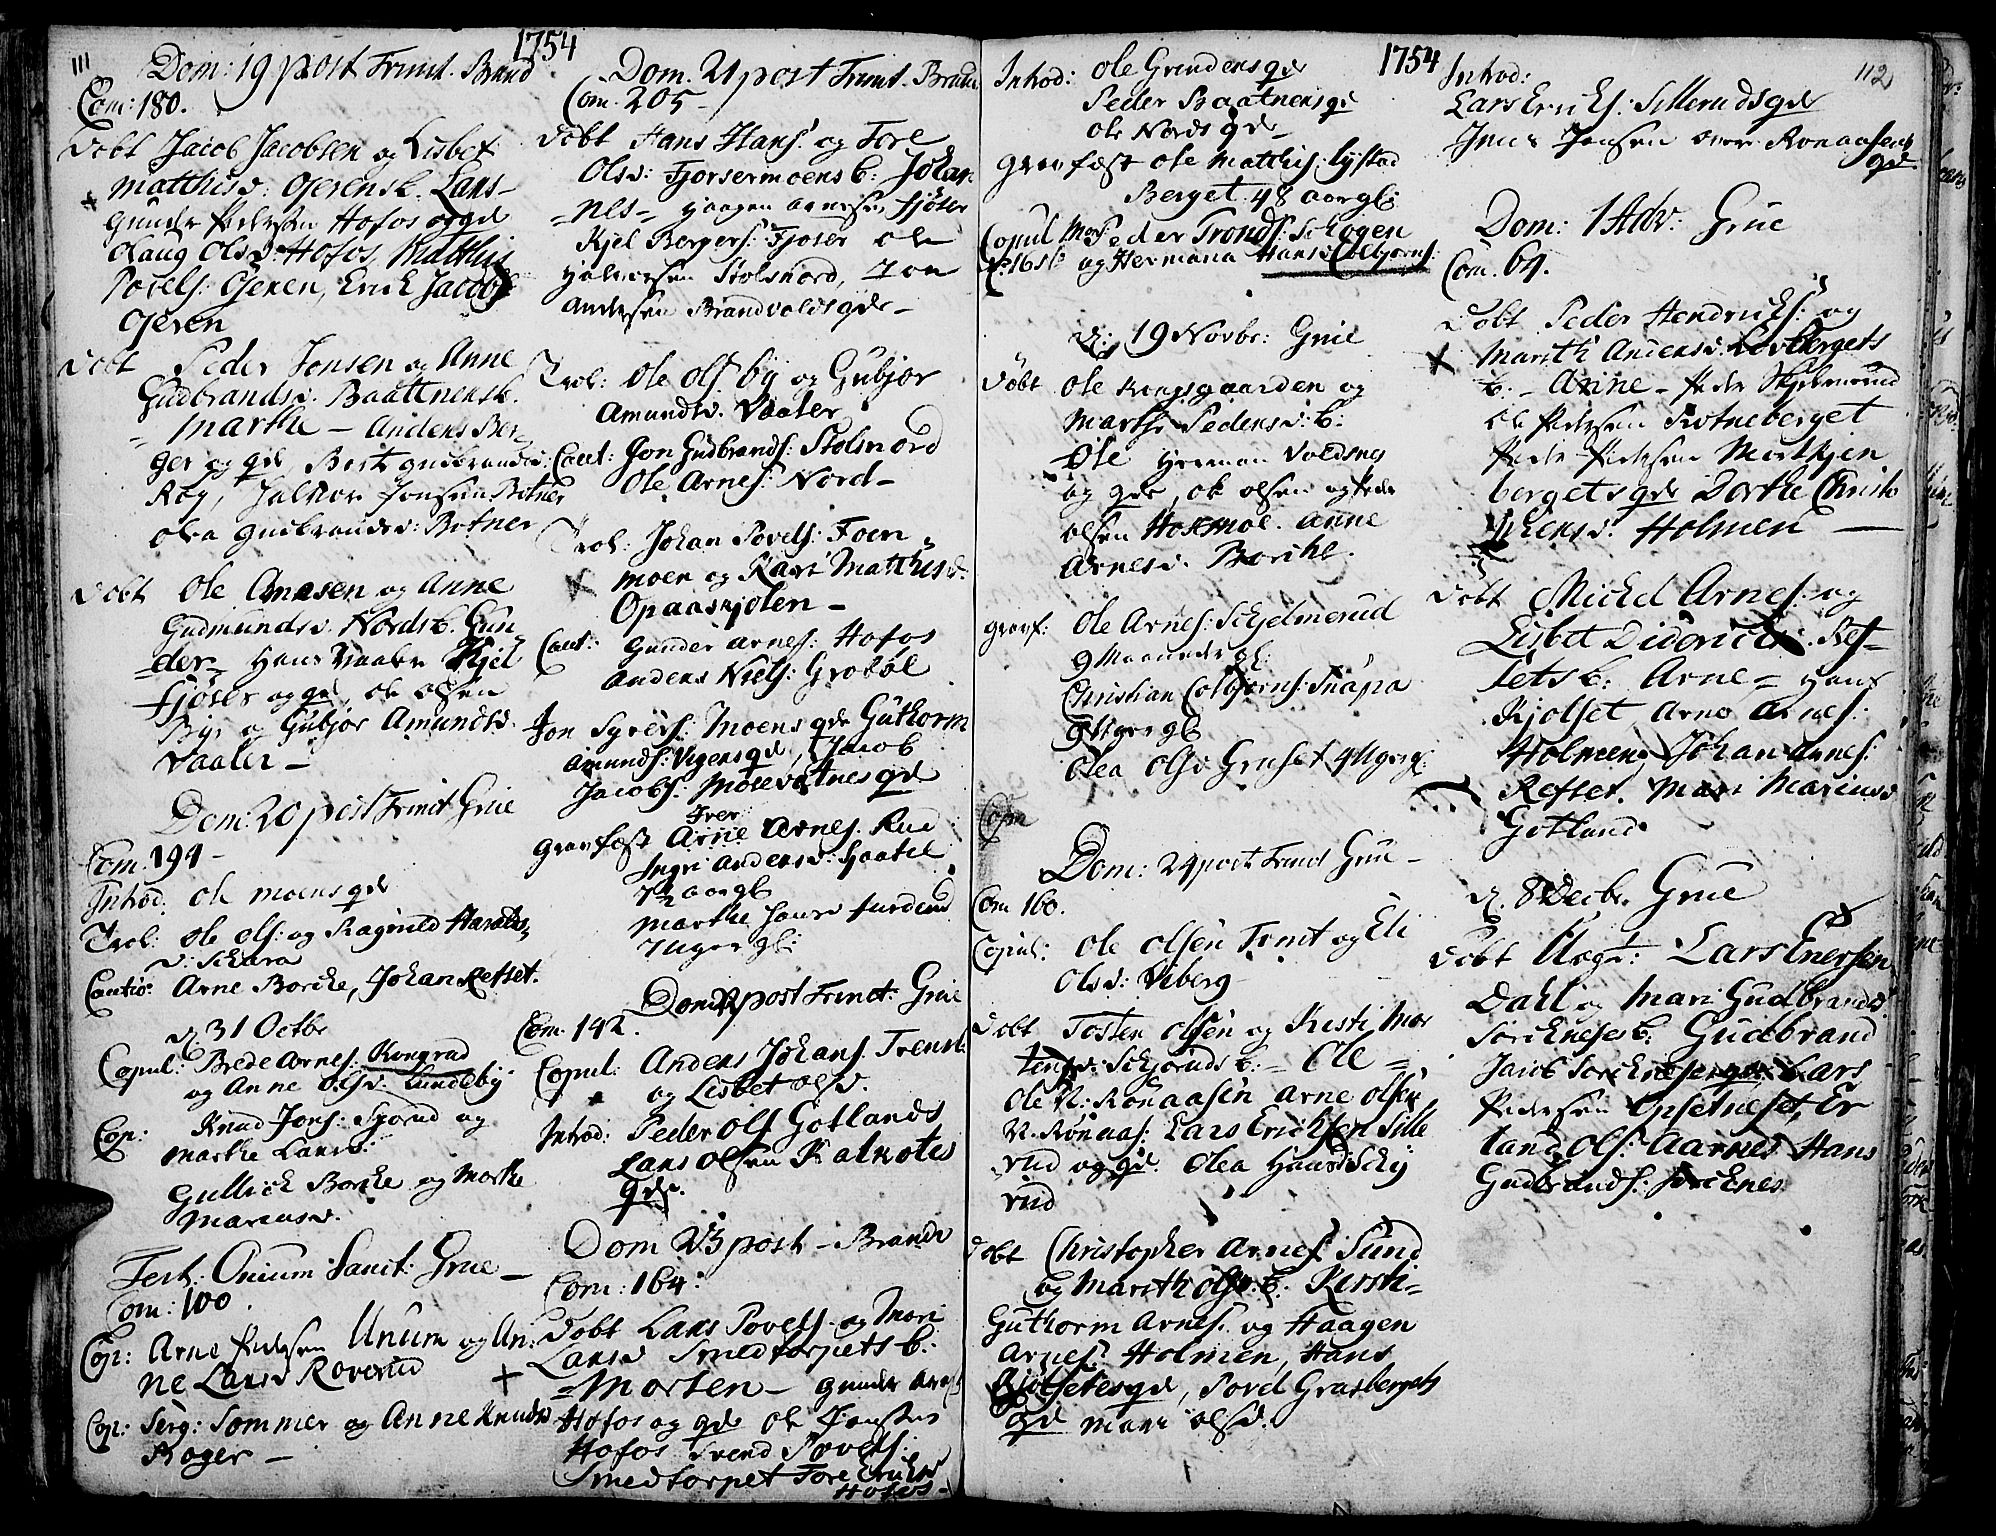 111
1754
Dom: 19 post Trinit. Brand
Com: 180.
Døbt Jacob Jacobsen og Lisbet
Matthisd: Gjerensb. Lars
Gunder Pedersen Hofos og gd
Olaug Olsd. Hofos, Matthis
Povels: Gjeren, Erich Jacobs
Gjeren
Døbt Peder Jonsen og Anne
Gudbrandsd. Baattnensb.
= Marthe - Andens Ber
ger og gd Gudbrandsd.
Røg, Halvor Jonsen Botner
Olea Gudbrandsd: Botner
Døbt Ole Arnesen og Anne
Gudmundsd. Nordsb. Gun
der= Hans Vaaler Kjel
Fjöser og gd, ole olsen
By, og Gubjör Amundsd.
Vaaler -
Dom: 20 post Trinit Grue
Com. 194 -
Introd. ole moens gd
Trol: ole ols: og Ragnild Haralds
d. Schara
Cautio: Arne Borche, Johan Refset.
d. 31 Octbr
Copul: Brede Arnes: Kongrud
og Anne Olsd. Lundeby
Cop: Knud Jons: Sjorud og
Marthe Larsd.
Gullich Borche og Marthe
Marensd.
Fest: Onium Sanct: Grue -
Com: 100.
Cop: Arne Pedersen Unum og An
ne Larsd Roverud
Cop: Serg: Sommer og Anne Knudsd
Roger -
Dom. 21 post Trinit. Brand
Com. 205 -
Døbt Hans Hans: og Tore
Olsd: Fjorsermoens b: Johan
nes - Haagen Arnesen Fjöser
Kjel Bergers: Fjoser ole
Halvorsen Stolsnord, Jon
Andersen Brandvolds gd -
Trol: Ole Ols By og Gubjor
Amundsd. Vaaler
Caut: Jon Gudbrands: Stolsnord
Ole Arnes: Nord -
Trol: Johan Povels: Foen
moen og Kari Matthisd.
Opaaskjolen -
Caut: Gunder Arnes: Hofos
Anders Niels: Grobøl
Jon Syvers: Moens gd Guthorm
Amunds: Vigens gd, Jacob
Jacobs: Morevatnes gd
Iver
Gravfæst Arne Arnes. Rud
Ingri Andersd:
7½ aar gl
Marthe Hansd Furderud
7 Uger gl:
Dom 22 post Trinit: Grue
Com. 142.
Copul: Anders Johans. Trent
og Lisbet Olsd.
Introd: Peder Ols Gotlands
Lars Olsen Kalnotes
gd.
Dom 23 post - Brande
Com: 164:
Døbt Lars Povels. og Mari
Larsd Smedtorpets b:
= Morten - Gunder Arnes
Hofos og gd ole Jensen
Hofos Svend Povels:
Smedtorpet Tore Erichsd
Hofos -
1754
Introd: Ole Grindens gd
Peder Baatnens gd
Ole Nords gd -
Gravfæst Ole Matthis: Lystad
Berget 48 aar gl:
Copul Mos: Peder Tronds: Schogen
og Hermana Hansd: Colbjorns:
d: 19 Novbr: Grue
Døbt Ole Kongsgaarden og
Marthe Pedersd: b.
Ole Herman Voldsnes
og gd, ole olsen og Peder
olsen Hokmoe. Anne
Arnesd. Borche.
Gravf: Ole Arnes: Schjelmerud
9 Maaneder gl.
Christian Colbjorns: Snapa
9 Uger gl
Olea Olsd Gruset 4 Uger gl:
Copu
Dom: 24 post Trinit Grue -
Com 160.
Copul: Ole Olsen Trent og Eli
Olsd: Viberg
Døbt Tosten Olsen og Kesti Mor
tensd: Schjoruds b: = Ole =
Ole N: Ronaasen Arne Olsen
N. Ronaas: Lars Erichsen Sille
rud og gd. Olea Hansd Schy
rud
Døbt Christopher Arnes Sund
og Marith Olsd: b: Kersti =
Guthorm Arnes. og Haagen
Arnes: Holmen, Hans
Kjölsetes gd, Povel Grasbergets
gd Mari Olsd.
112
Introd:
Lars Erichs: Sillerudsgd
Jens Jensen over Ronaasens
gd.
Dom: 1 Adv: Grue
Com. 64.
Døbt Peder Hendrichs: og
Marith Andersd: Lovbergets
b: - Anne - Peder Skjelmerud
ole Pedersen Rotneberget
Peder Pedersen Morkjen
bergets gd Dorthe Christo
phersd. Holmen -
Døbt Michel Arnes: og
Lisbet Diderichs: Ref
sets b: Arne = Hans
Kjolset, Arne Arnes:
Holmen, Johan Arnes:
Refset. Mari Mariusd
Gotland.
d. 8 Decbr. Grue
Døbt Uægt: Lars Enersen
Dahl og Mari Gudbrandsd:
Sorchnes b: Gudbrand
Jacob Lars
Pedersen Opsetneset, Er
land Ols: Aarnes Hans
Gudbrands: Sorchnes